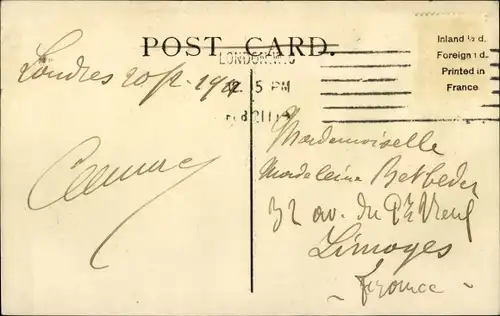 POST CARD.
Inland ½ d.
Foreign 1 d.
Printed in
France
LONDON.W.
5 PM
FEB 21 11
Londres 20/2 - 1911
Mademoiselle
Madeleine Betbeder
32 av. du Pt Neuf
Limoges
- France -